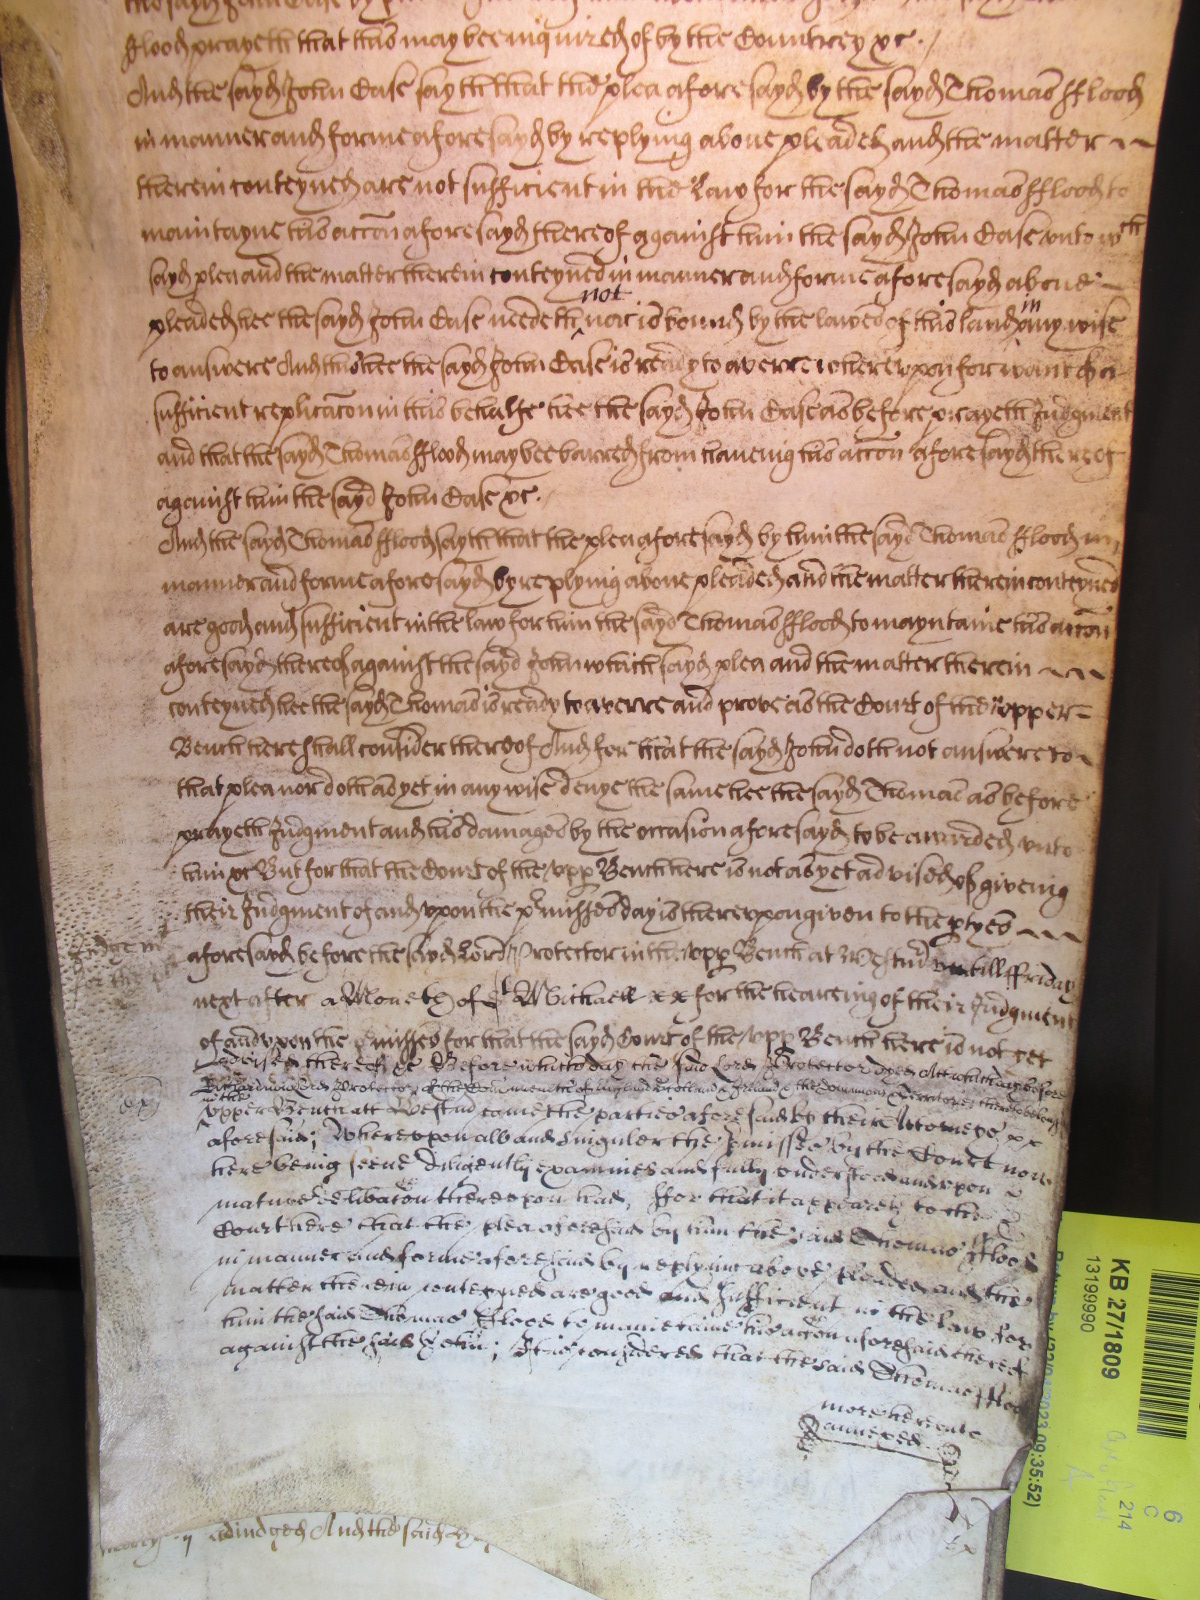 the sayd John Case
fflood prayeth that this may bee inquired of by the Countrey &c.
And the sayd John Case sayth that the plea aforesayd by the sayd Thomas fflood
in manner and forme aforesayd by replying above pleaded and the matter
therein conteyned are not sufficient in the Law for the sayd Thomas fflood to
maintayne his accon aforesayd thereof against him the sayd John Case unto wch
sayd plea and the matter therein conteyned in manner and forme aforesayd above
pleaded hee the sayd John Case needeth not nor is bound by the lawes of this land in any wise
to answere And this hee the sayd John Case is ready to averre whereupon for want of a
sufficient replicacon in this behalfe hee the sayd John Case as before prayeth Judgment
and that the sayd Thomas fflood may bee barred from haveing his accon aforesayd thereof
against him the sayd John Case &c.
And the sayd Thomas fflood sayth that the plea aforesayd by him the sayd Thomas fflood in
manner and forme aforesayd by replying above pleaded and the matter therein conteyned
are good and sufficient in the law for him the sayd Thomas fflood to mayntaine his accon
aforesayd thereof against the sayd John which sayd plea and the matter therein
conteyned hee the sayd Thomas is ready to averre and prove as the Court of the upper
Bench here shall consider thereof And for that the sayd John doth not answere to
that plea nor doth as yet in any wise denye the same hee the sayd Thomas as before
prayeth Judgment and his damages by the occasion aforesayd to be awarded unto
him &c But for that the Court of the upp Bench here is not as yet advised of giveing
their Judgment of and upon the pmisses day is thereupon given to the ptyes
aforesayd before the sayd Lord Protector in the upp Bench at Westmr untill ffriday
next after a Moneth of St Michaell xx for the heareing of their Judgment
of and upon the pmisses for that the sayd Court of the upp Bench here is not yet
advised thereof &c Before which day the said Lord Protector dyed Att which day before
Richard Lord Protector of the Comonwealth of England Scotland & Ireland & the Dominions & Territories thereto belonging
in the
Upper Bench att Westmr come the parties aforesaid by their Attorneys xx
aforesaid; Whereupon all and singuler the pmisses by the Court now
here being seene diligently examined and fully understood and upon
mature deliberacon thereupon had, ffor that it appeareth to the
Court here that the plea aforesaid by him the said Thomas fflood
in manner and forme aforesaid by replying above pleaded and the
matter therein conteyned are good and sufficient in the law for
him the said Thomas fflood to mainteine his accon aforesaid thereof
against the said John; It is considered that the said Thomas ffloo
more hereunto
annexed
Judgemt
for the
adiudged And the said
KB 27/1809
13199990
09:35:52)
6
C
214